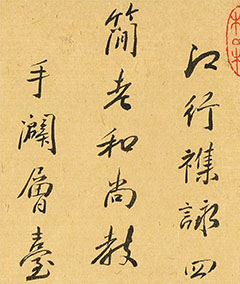 江行襍詠四
簡老和尚教
手闢層臺